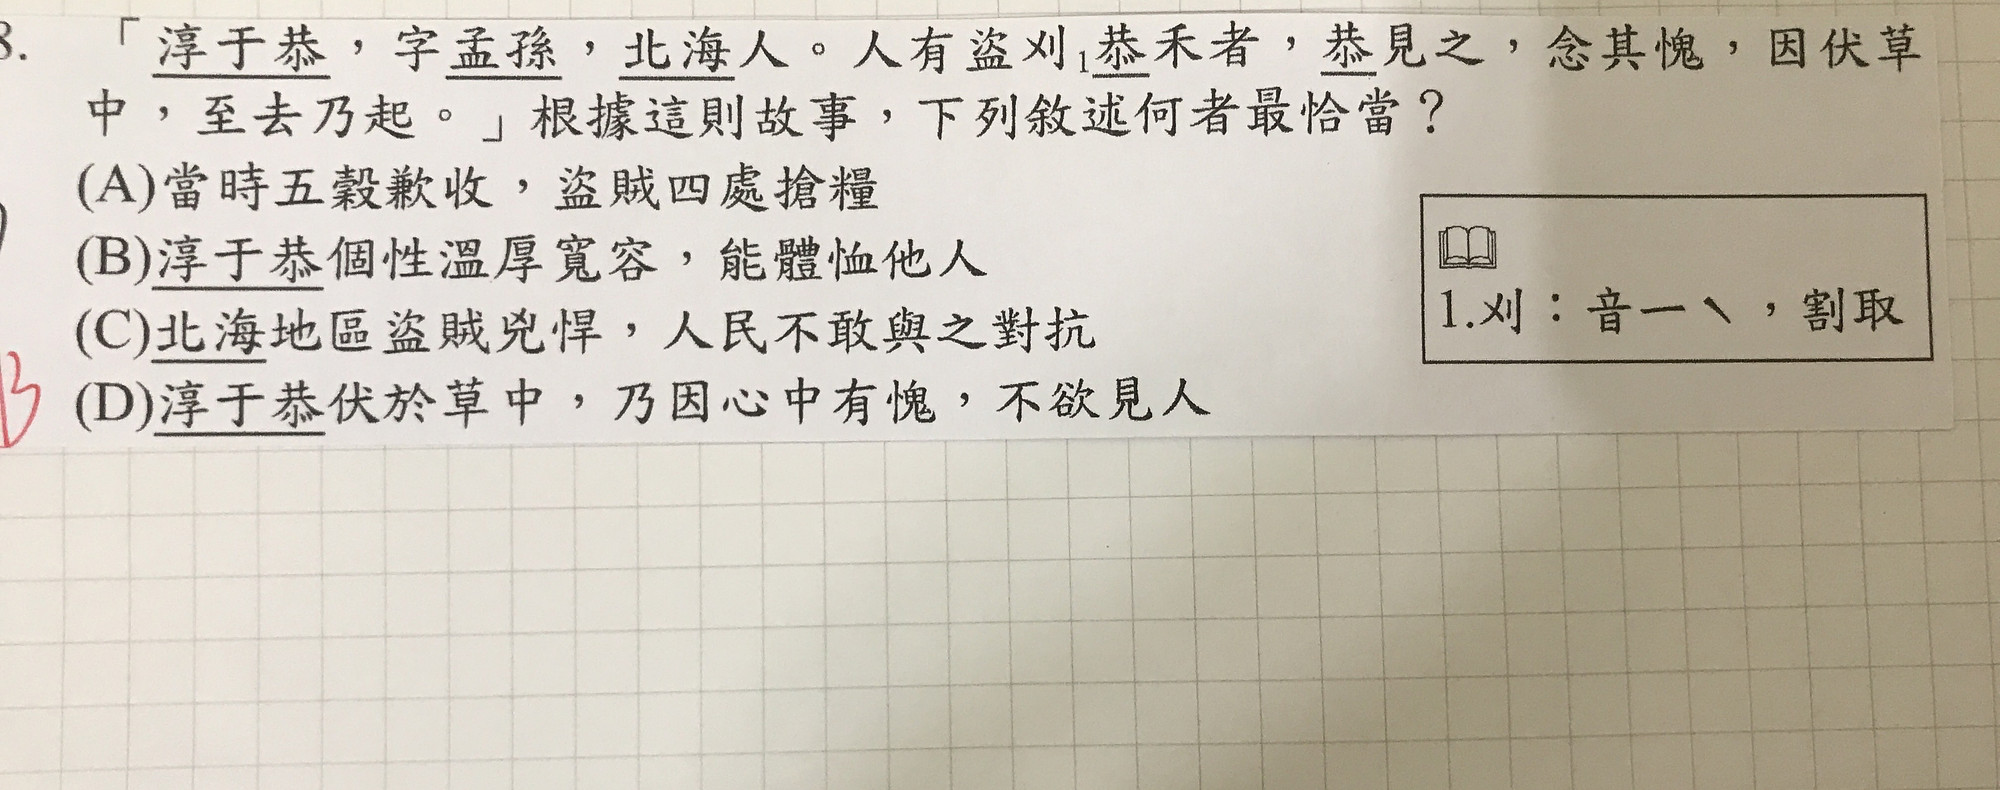 8. 「淳于恭，字孟孫，北海人。人有盜刈1恭禾者，恭見之，念其愧，因伏草
中，至去乃起。」根據這則故事，下列敘述何者最恰當？
(A)當時五穀歉收，盜賊四處搶糧
(B)淳于恭個性溫厚寬容，能體恤他人
(C)北海地區盜賊兇悍，人民不敢與之對抗
(D)淳于恭伏於草中，乃因心中有愧，不欲見人
1.刈：音ㄧˋ，割取
B